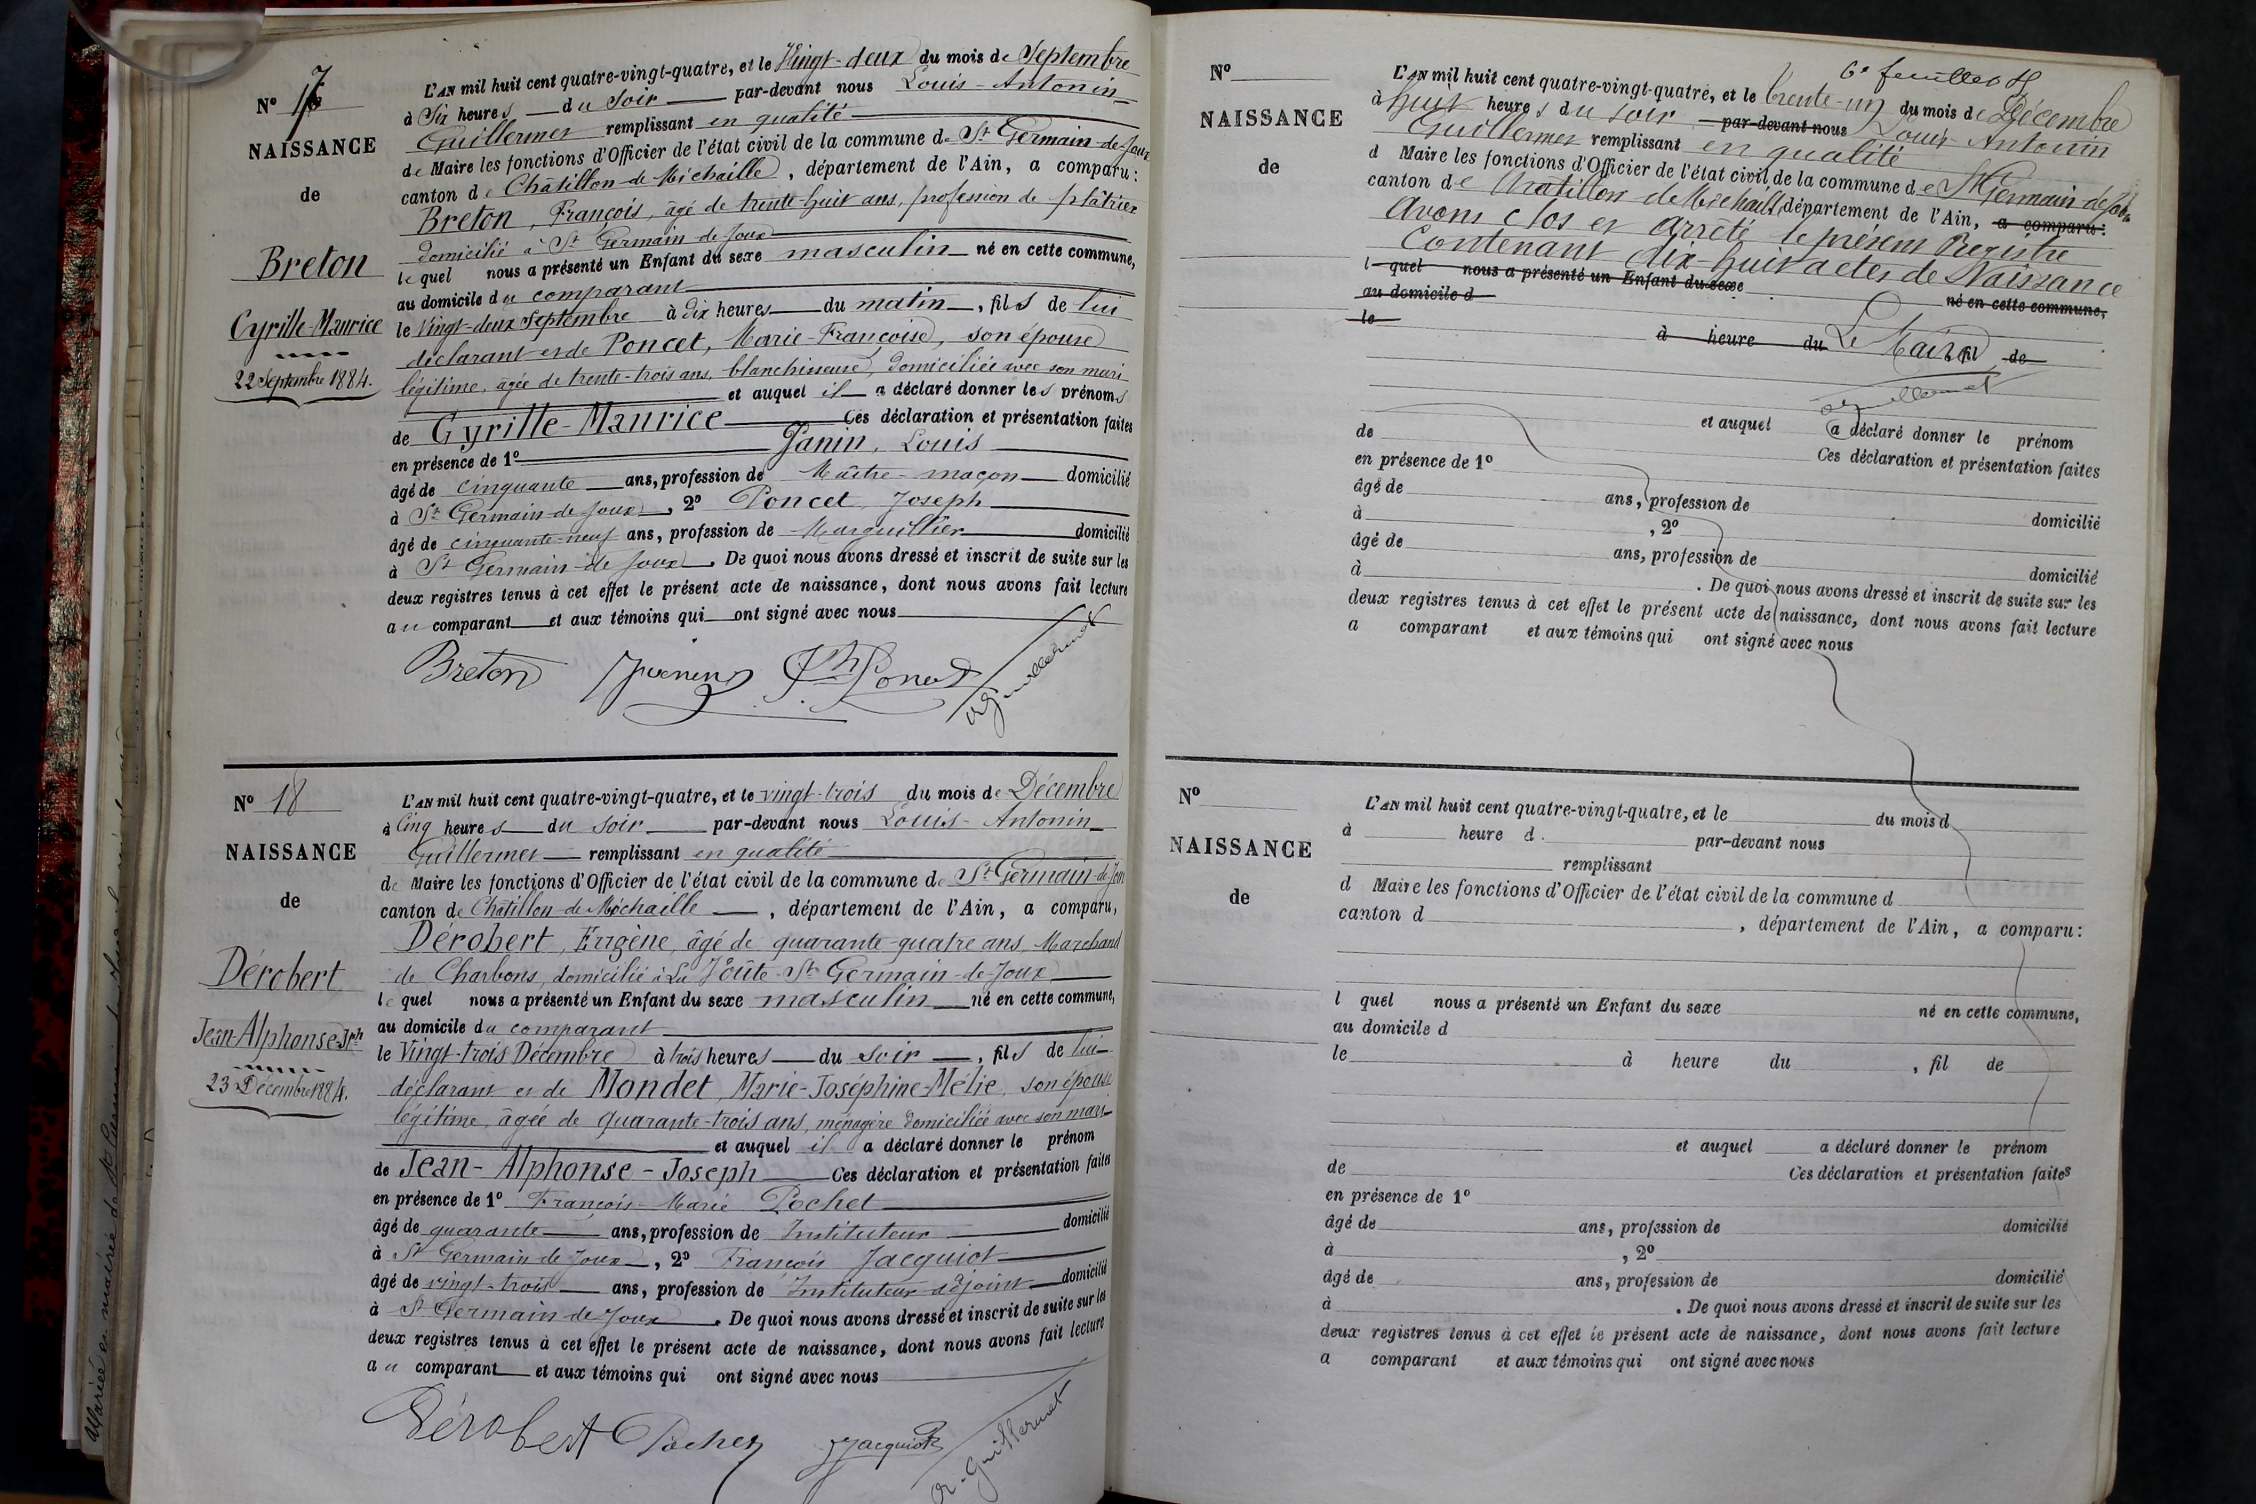 Nº 17
NAISSANCE
de
Breton
Cyrille-Maurice
22 Septembre 1884.
L'AN mil huit cent quatre-vingt-quatre, et le Vingt-deux du mois de Septembre
à Six heures du Soir par-devant nous Louis-Antonin
Guillermet remplissant en qualité
de Maire les fonctions d'Officier de l'état civil de la commune de St Germain-de-Joux
canton de Châtillon-de-Michaille, département de l'Ain, a comparu:
Breton, François, âgé de trente-huit ans, profession de plâtrier
domicilié à St Germain-de-Joux
lequel nous a présenté un Enfant du sexe masculin né en cette commune,
au domicile du comparant
le Vingt-deux Septembre à dix heures du matin, fils de lui
déclarant et de Poncet, Marie-Françoise, son épouse
légitime, âgée de trente-trois ans, blanchisseuse, domiciliée avec son mari
et auquel il a déclaré donner les prénoms
de Cyrille-Maurice Ces déclaration et présentation faites
en présence de 1º Janin, Louis
âgé de cinquante ans, profession de Maître-maçon domicilié
à St Germain-de-Joux, 2º Poncet Joseph
âgé de cinquante-neuf ans, profession de Marguillier domicilié
à St Germain-de-Joux. De quoi nous avons dressé et inscrit de suite sur les
deux registres tenus à cet effet le présent acte de naissance, dont nous avons fait lecture
au comparant et aux témoins qui ont signé avec nous
Breton Janin Jh Poncet A. Guillermet
Nº 18
NAISSANCE
de
Dérobert
Jean-Alphonse-Jph
23 Décembre 1884.
L'AN mil huit cent quatre-vingt-quatre, et le vingt-trois du mois de Décembre
à Cinq heures du soir par-devant nous Louis-Antonin
Guillermet remplissant en qualité
de Maire les fonctions d'Officier de l'état civil de la commune de St Germain-de-Joux
canton de Châtillon-de-Michaille, département de l'Ain, a comparu,
Dérobert, Eugène, âgé de quarante-quatre ans, Marchand
de Charbons, domicilié à La Voûte St Germain-de-Joux
lequel nous a présenté un Enfant du sexe masculin né en cette commune,
au domicile du comparant
le Vingt-trois Décembre à trois heures du soir, fils de lui
déclarant et de Mondet, Marie-Joséphine-Mélie, son épouse
légitime, âgée de quarante-trois ans, ménagère domiciliée avec son mari
et auquel il a déclaré donner le prénom
de Jean-Alphonse-Joseph Ces déclaration et présentation faites
en présence de 1º François-Marie Pochet
âgé de quarante ans, profession de Instituteur domicilié
à St Germain de Joux, 2º François Jacquiot
âgé de vingt-trois ans, profession de Instituteur adjoint domicilié
à St Germain-de-Joux. De quoi nous avons dressé et inscrit de suite sur les
deux registres tenus à cet effet le présent acte de naissance, dont nous avons fait lecture
au comparant et aux témoins qui ont signé avec nous
Dérobert Pochet Jacquiot A. Guillermet
6e feuillet
Nº
NAISSANCE
de
L'AN mil huit cent quatre-vingt-quatre, et le trente-un du mois de Décembre
à huit heures du soir par-devant nous Louis Antonin
Guillermet remplissant en qualité
d Maire les fonctions d'Officier de l'état civil de la commune de St Germain-de-Joux
canton de Chatillon-de-Michaille, département de l'Ain, a comparu:
Avons clos et arrêté le présent Registre
Contenant dix-huit actes de Naissance
l quel nous a présenté un Enfant du sexe né en cette commune,
au domicile d
le à heure du Le Maire, fil de
A. Guillermet
et auquel a déclaré donner le prénom
de Ces déclaration et présentation faites
en présence de 1º
âgé de ans, profession de domicilié
à , 2º
âgé de ans, profession de domicilié
à . De quoi nous avons dressé et inscrit de suite sur les
deux registres tenus à cet effet le présent acte de naissance, dont nous avons fait lecture
a comparant et aux témoins qui ont signé avec nous
Nº
NAISSANCE
de
L'AN mil huit cent quatre-vingt-quatre, et le du mois d
à heure d par-devant nous
remplissant
d Maire les fonctions d'Officier de l'état civil de la commune d
canton d , département de l'Ain, a comparu:
l quel nous a présenté un Enfant du sexe né en cette commune,
au domicile d
le à heure du , fil de
et auquel a déclaré donner le prénom
de Ces déclaration et présentation faites
en présence de 1º
âgé de ans, profession de domicilié
à , 2º
âgé de ans, profession de domicilié
à . De quoi nous avons dressé et inscrit de suite sur les
deux registres tenus à cet effet le présent acte de naissance, dont nous avons fait lecture
a comparant et aux témoins qui ont signé avec nous